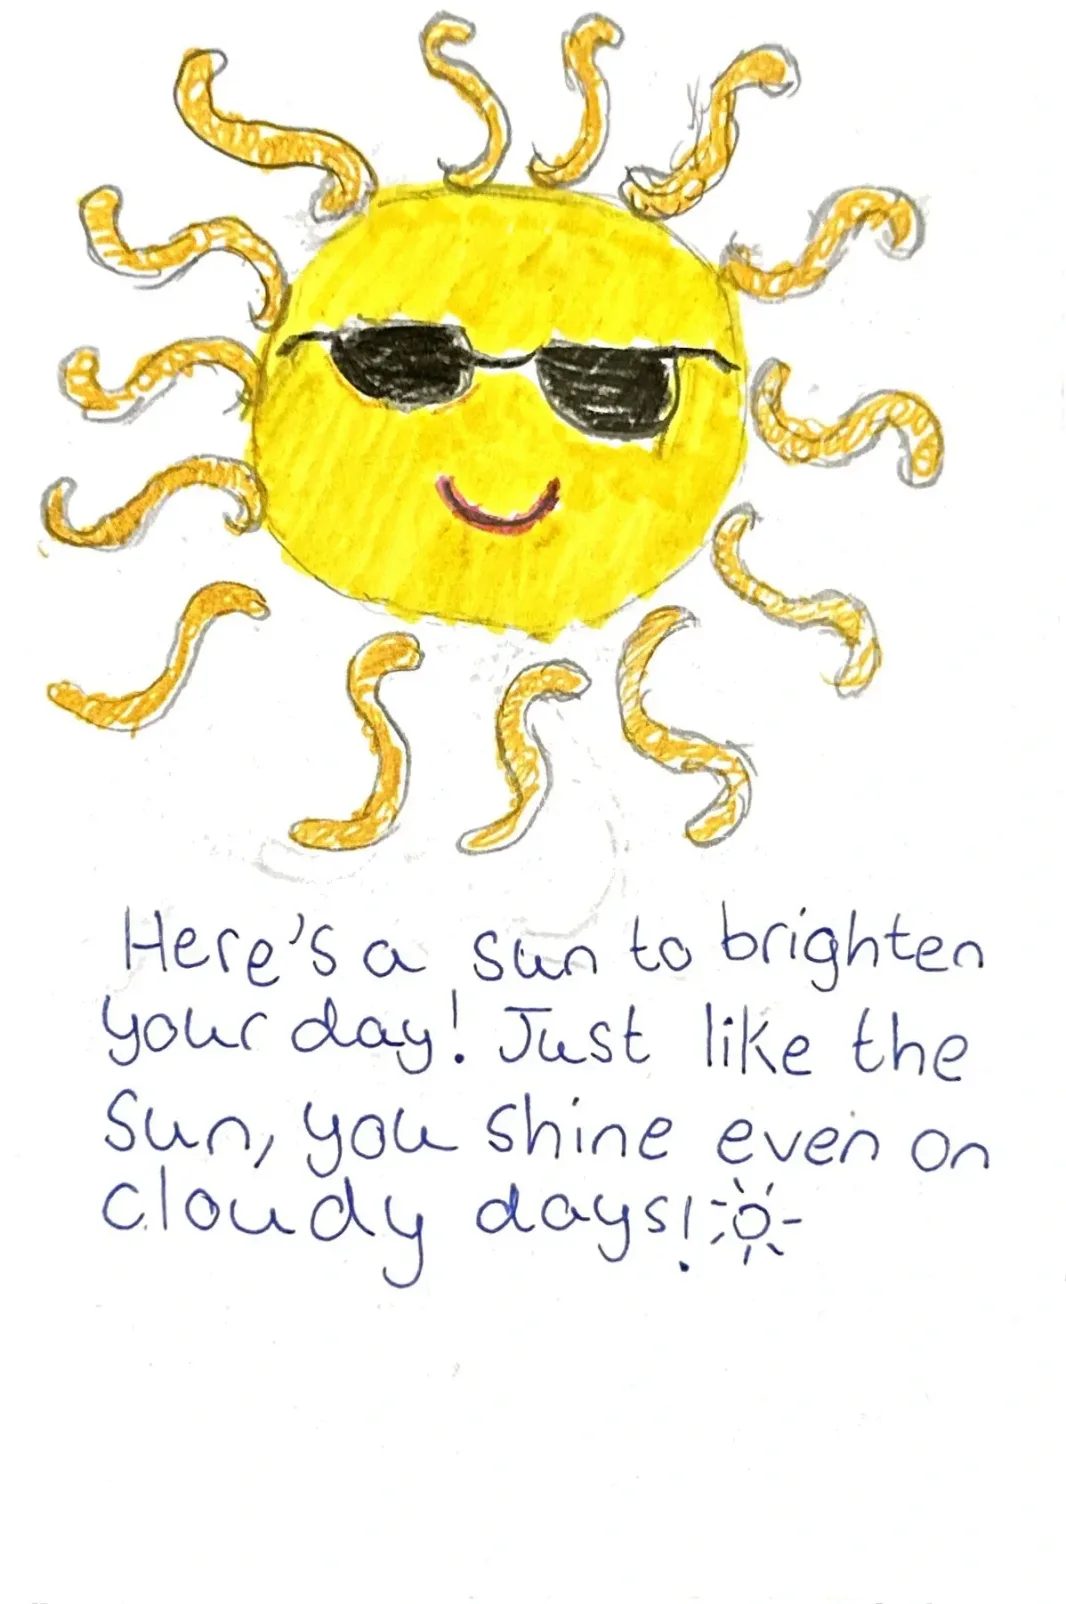 Here's a sun to brighten
your day! Just like the
Sun, you shine even on
cloudy days!